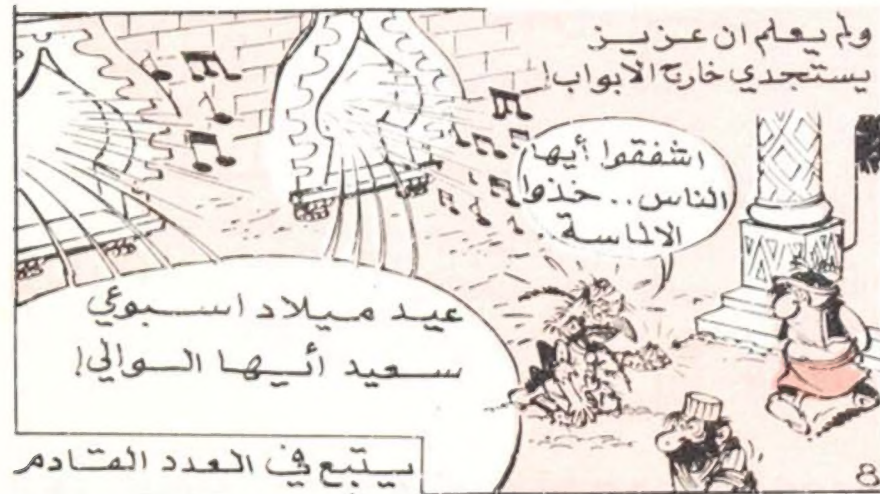 ولم يعلم ان عزيز
يستجدي خارج الابواب!
اشفقوا أيها
الناس.. خذوا
الالماسة!
عيد ميلاد اسبوعي
سعيد أيها الوالي!
يتبع في العدد القادم
8